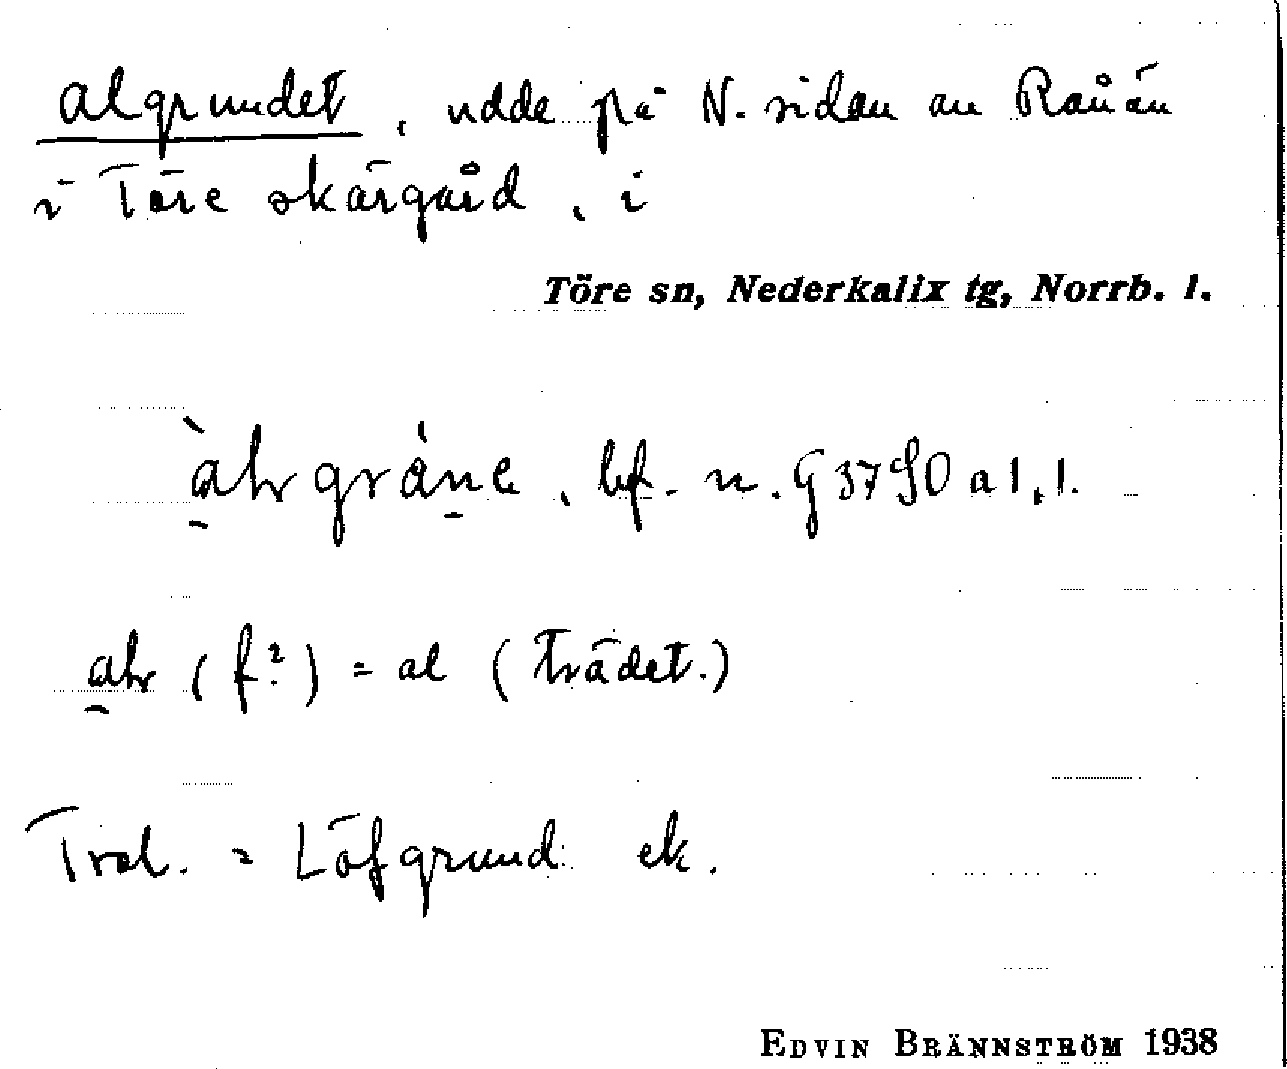 algrundet, udde på N. sidan av Rånön
i Töre skärgård, i
Töre sn, Nederkalix tg, Norrb. l.
àhrgràne, bf. n. G 3790 a l, l.
ahr (f?) = al (trädet.)
Trol. = Löfgrund ek.
EDVIN BRÄNNSTRÖM 1938